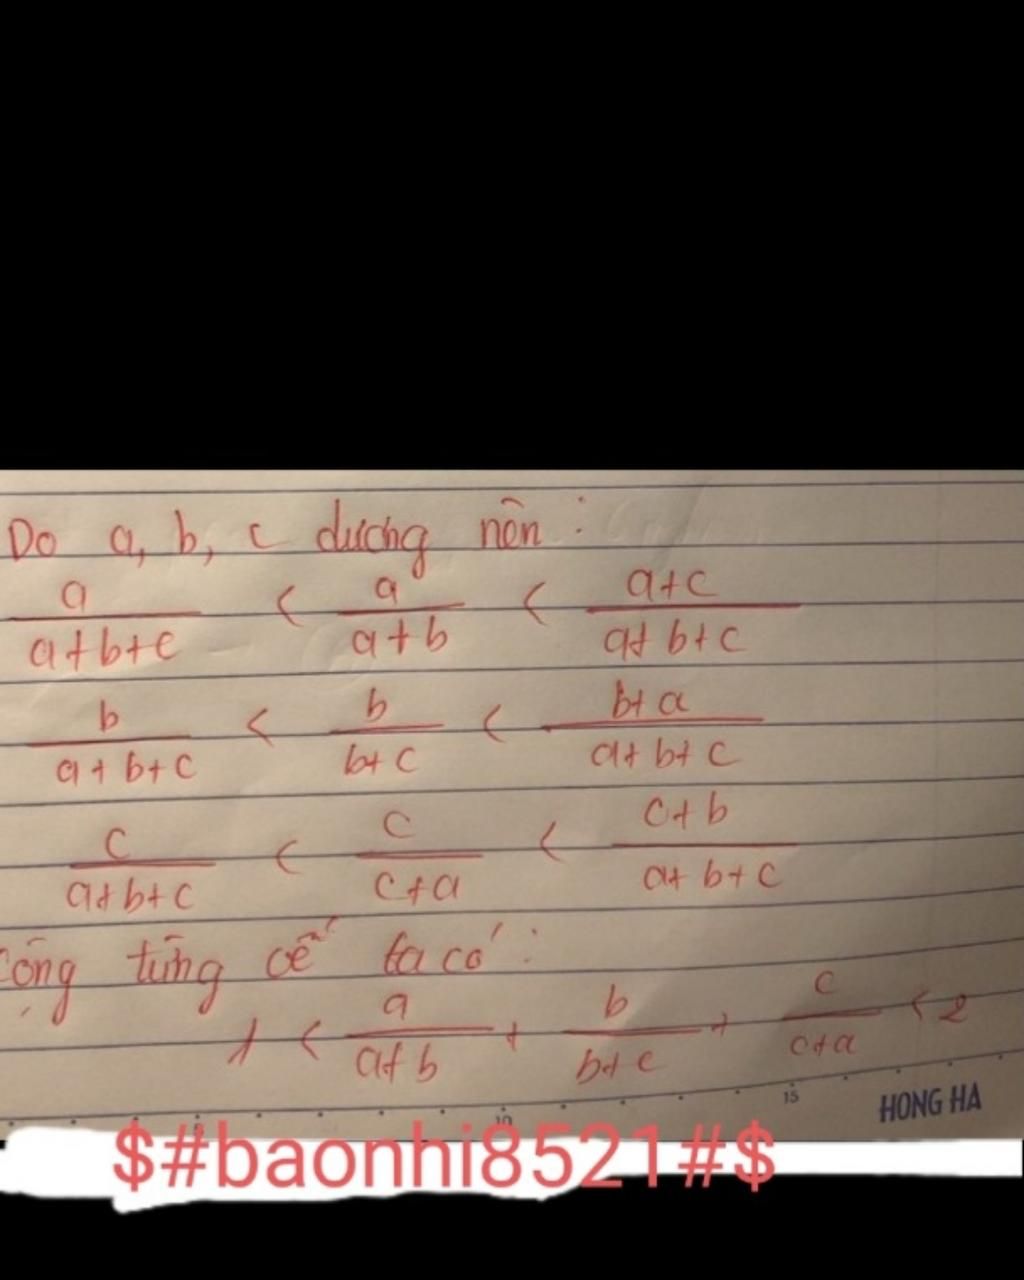 Do a, b, c dương nên :
a/(a+b+c) < a/(a+b) < (a+c)/(a+b+c)
b/(a+b+c) < b/(b+c) < (b+a)/(a+b+c)
c/(a+b+c) < c/(c+a) < (c+b)/(a+b+c)
Cộng từng cế ta có :
1 < a/(a+b) + b/(b+c) + c/(c+a) < 2
10 15 HONG HA
$#baonhi8521#$